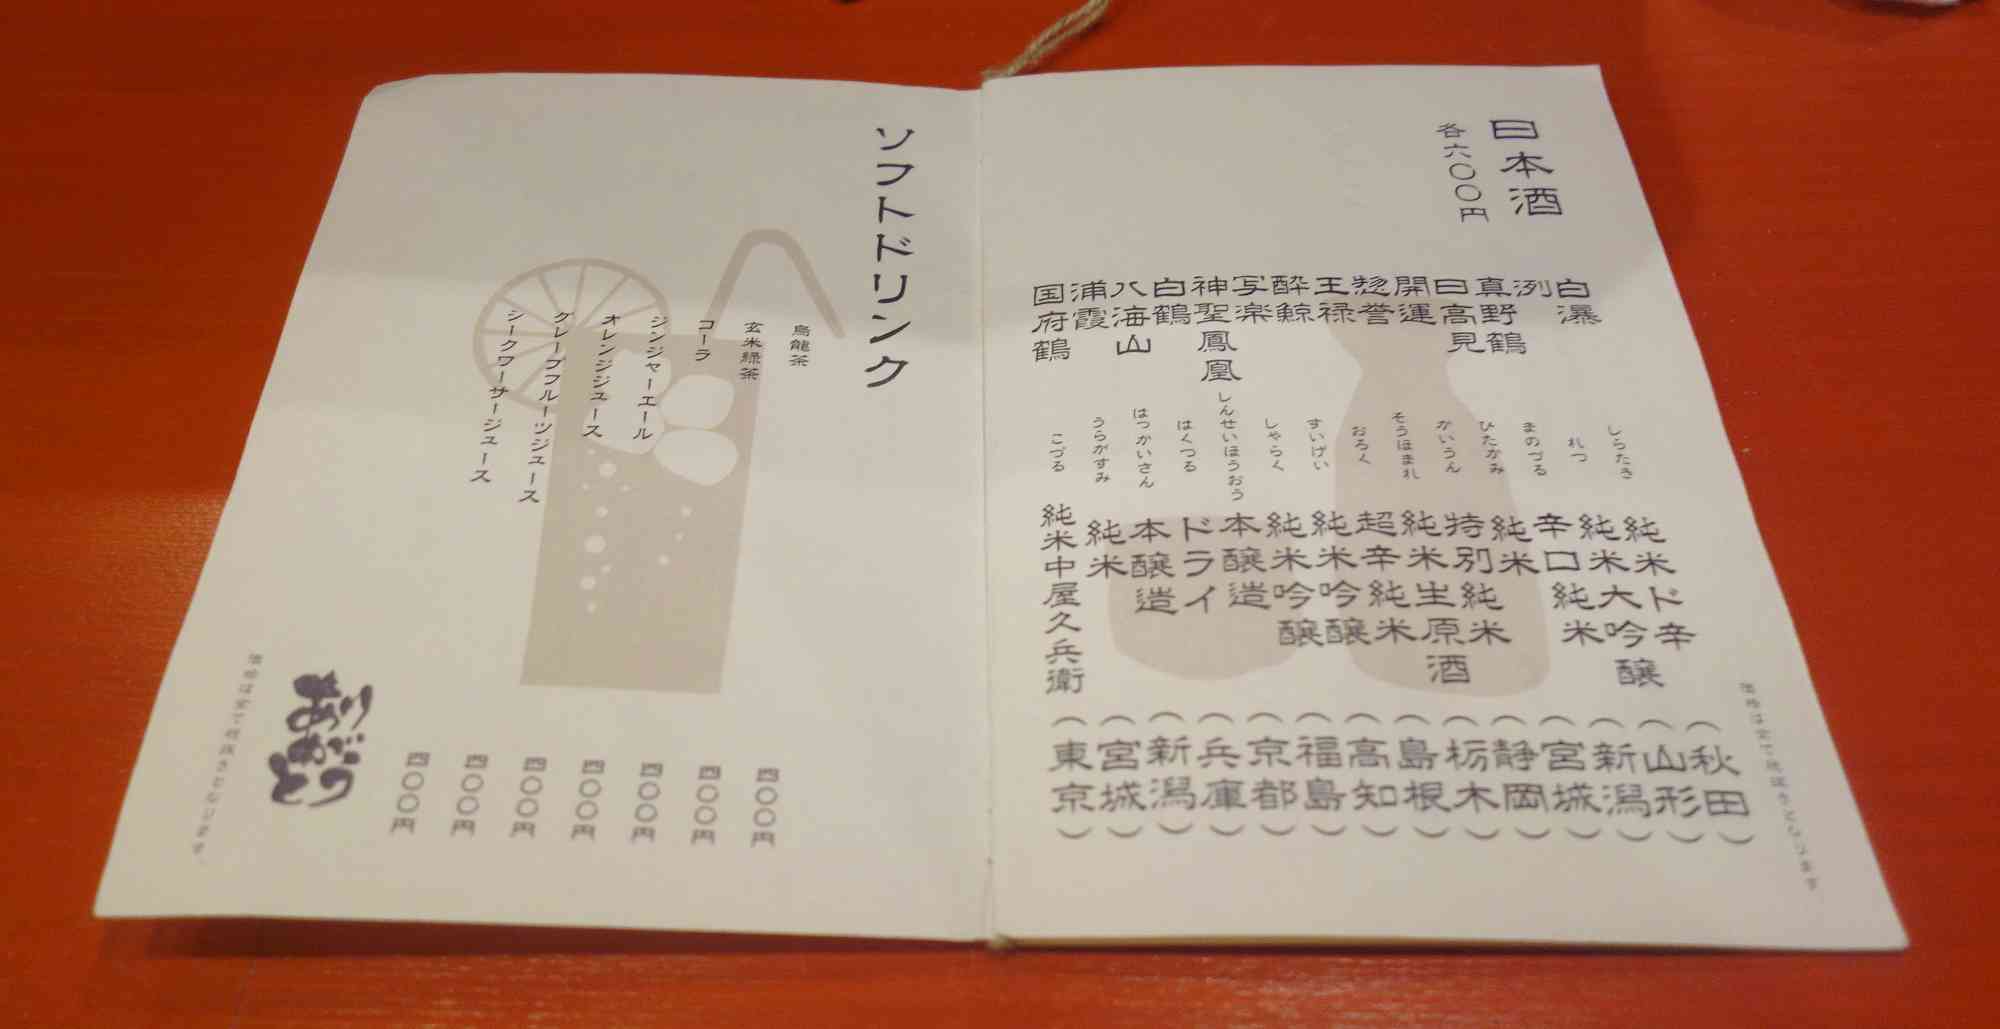 日本酒
各六〇〇円
白瀑 しらたき 純米ド辛 (秋田)
洌 れつ 純米大吟醸 (山形)
真野鶴 まのづる 辛口純米 (新潟)
日高見 ひたかみ 純米 (宮城)
開運 かいうん 特別純米 (静岡)
惣誉 そうほまれ 純米生原酒 (栃木)
王禄 おろく 超辛純米 (島根)
酔鯨 すいげい 純米吟醸 (高知)
写楽 しゃらく 純米吟醸 (福島)
神聖鳳凰 しんせいほうおう 本醸造 (京都)
白鶴 はくつる ドライ (兵庫)
八海山 はっかいさん 本醸造 (新潟)
浦霞 うらがすみ 純米 (宮城)
国府鶴 こづる 純米中屋久兵衛 (東京)
価格は全て税抜きとなります
ソフトドリンク
烏龍茶 四〇〇円
玄米緑茶 四〇〇円
コーラ 四〇〇円
ジンジャーエール 四〇〇円
オレンジジュース 四〇〇円
グレープフルーツジュース 四〇〇円
シークワーサージュース 四〇〇円
価格は全て税抜きとなります。